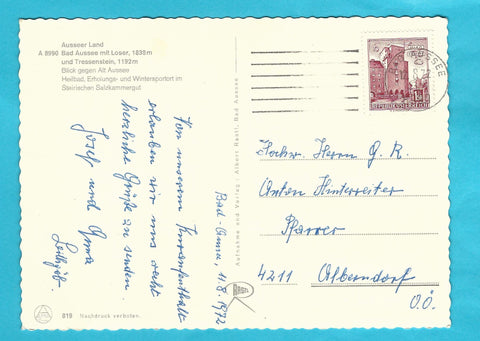 Ausseer Land
A 8990 Bad Aussee mit Loser, 1838m
und Tressenstein, 1192m
Blick gegen Alt Aussee
Heilbad, Erholungs- und Wintersportort im
Steirischen Salzkammergut
Bad-Aussee, 11.8.1972
Von unserem Kuraufenthalt
erlauben wir uns recht
herzliche Grüße zu senden.
Josef und Anna
819 Nachdruck verboten.
Aufnahme und Verlag: Albert Rastl, Bad Aussee
RASTL
AUSSEE
REPUBLIK ÖSTERREICH
Hochw. Herrn G. R.
Anton Hinterreiter
Pfarrer
4211 Alberndorf
O.Ö.